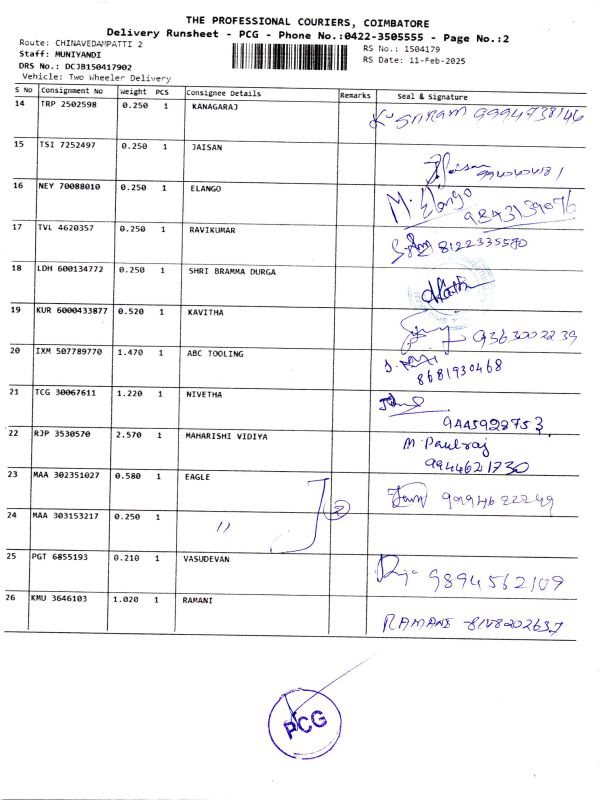 THE PROFESSIONAL COURIERS, COIMBATORE
Delivery Runsheet - PCG - Phone No.:0422-3505555 - Page No.:2
Route: CHINAVEDAMPATTI 2 RS No.: 1504179
Staff: MUNIYANDI RS Date: 11-Feb-2025
DRS No.: DCJB150417902
Vehicle: Two Wheeler Delivery
S No Consignment No Weight PCS Consignee Details Remarks Seal & Signature
14 TRP 2502598 0.250 1 KANAGARAJ K. SRIRAM 9994738146
15 TSI 7252497 0.250 1 JAISAN
16 NEY 70088010 0.250 1 ELANGO M. Elango 9843139076
17 TVL 4620357 0.250 1 RAVIKUMAR 8122335580
18 LDH 600134772 0.250 1 SHRI BRAMMA DURGA
19 KUR 6000433877 0.520 1 KAVITHA 9363002239
20 IXM 507789770 1.470 1 ABC TOOLING
8681930468
21 TCG 30067611 1.220 1 NIVETHA
9445928753
22 RJP 3530570 2.570 1 MAHARISHI VIDIYA M. Paulraj
9944621730
23 MAA 302351027 0.580 1 EAGLE 2 9994622249
24 MAA 303153217 0.250 1 "
25 PGT 6855193 0.210 1 VASUDEVAN 9894562109
26 KMU 3646103 1.020 1 RAMANI RAMANI 8148202637
PCG